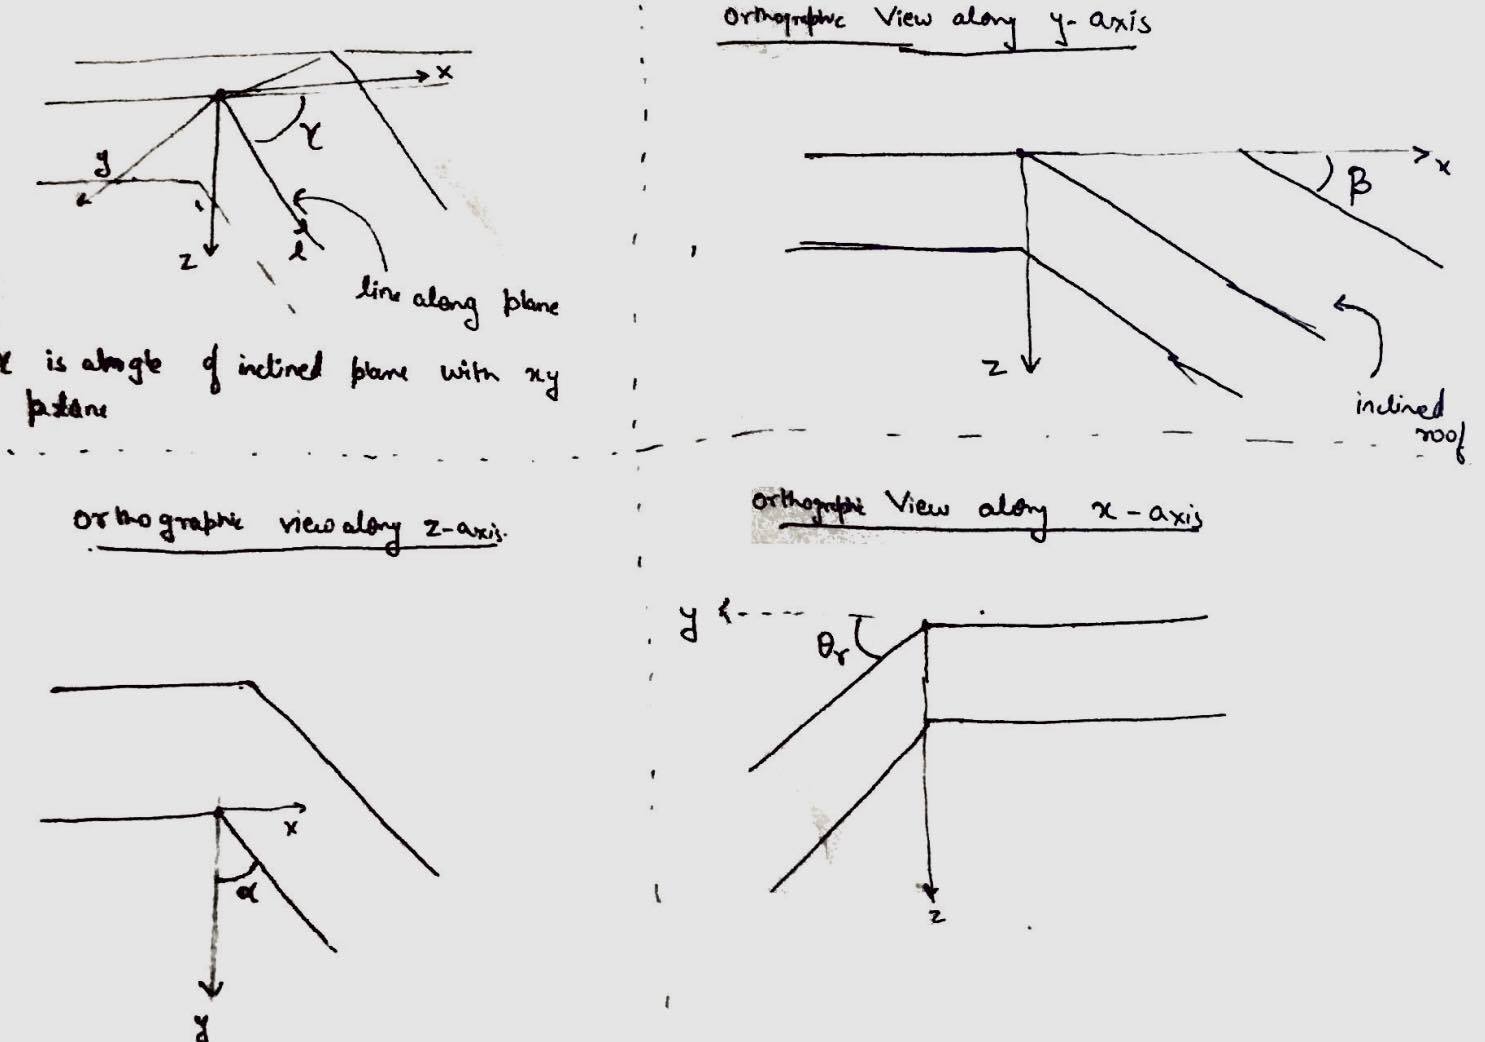 x
γ
y
z
l
line along plane
is angle of inclined plane with xy
plane
Orthographic View along y-axis
x
β
z
inclined
roof
Orthographic view along z-axis.
x
α
y
Orthographic View along x-axis
y
θr
z